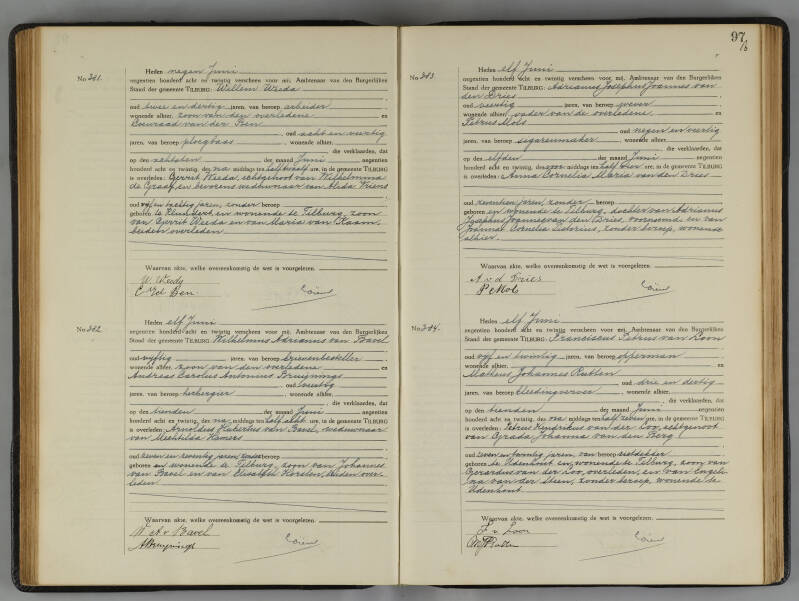 No 341.
Heden negen Juni
negentien honderd acht en twintig verscheen voor mij, Ambtenaar van den Burgerlijken
Stand der gemeente TILBURG: Willem Weeda
oud twee en dertig jaren, van beroep arbeider
wonende alhier, zoon van den overledene en
Coenraad van der Pen
oud acht en veertig
jaren, van beroep ploegbaas, wonende alhier,
, die verklaarden, dat
op den achtsten der maand Juni negentien
honderd acht en twintig, des middags ten half twaalf ure, in de gemeente TILBURG
is overleden: Gerrit Weeda, echtgenoot van Wilhelmina
de Graaf, en bevorens weduwnaar van Alida
oud jaren, zonder beroep
geboren te Klundert en wonende te Tilburg, zoon
van Gerrit Weeda en van Maria van
beiden overleden.
Waarvan akte, welke overeenkomstig de wet is voorgelezen.
W. Weeda
No 342
Heden elf Juni
negentien honderd acht en twintig verscheen voor mij, Ambtenaar van den Burgerlijken
Stand der gemeente TILBURG: Wilhelmus Adrianus van Bavel
oud vijftig jaren, van beroep brievenbesteller
wonende alhier, zoon van den overledene en
Andreas Carolus Antonius Bruijnings
oud veertig
jaren, van beroep herbergier, wonende alhier,
, die verklaarden, dat
op den tienden der maand Juni negentien
honderd acht en twintig, des na middags ten half acht ure, in de gemeente TILBURG
is overleden: Arnoldus Hubertus van Bavel, weduwnaar
van Mechtilda Hamers
oud zeven en zeventig jaren, zonder beroep
geboren en wonende te Tilburg, zoon van Johannes
van Bavel en van Elisabeth Horsten, beiden over-
leden
Waarvan akte, welke overeenkomstig de wet is voorgelezen.
W. A. v. Bavel
ABruijnings
97/b
No 343
Heden elf Juni
negentien honderd acht en twintig verscheen voor mij, Ambtenaar van den Burgerlijken
Stand der gemeente TILBURG: Adrianus Josephus Joannes van
den Dries
oud veertig jaren, van beroep wever
wonende alhier, vader van de overledene, en
Petrus Mols
oud negen en veertig
jaren, van beroep sigarenmaker, wonende alhier,
, die verklaarden, dat
op den elfden der maand Juni negentien
honderd acht en twintig, des voor middags ten half tien ure, in de gemeente TILBURG
is overleden: Anna Cornelia Maria van den Dries
oud zeventien jaren, zonder beroep
geboren en wonende te Tilburg, dochter van Adrianus
Josephus Joannes van den Dries, voornoemd, en van
Joanna Cornelia zonder beroep, wonende
alhier.
Waarvan akte, welke overeenkomstig de wet is voorgelezen.
A v d Dries
P Mols
No 344.
Heden elf Juni
negentien honderd acht en twintig verscheen voor mij, Ambtenaar van den Burgerlijken
Stand der gemeente TILBURG: Franciscus Petrus van Loon
oud vijf en twintig jaren, van beroep opperman
wonende alhier, en
Matheus Johannes Rutten
oud drie en dertig
jaren, van beroep kleedingverver, wonende alhier,
, die verklaarden, dat
op den tienden der maand Juni negentien
honderd acht en twintig, des na middags ten half zeven ure, in de gemeente TILBURG
is overleden: Petrus Hendrikus van der Loo, echtgenoot
van Grada Johanna van den Berg
oud zeven en twintig jaren, van beroep
geboren te Udenhout en wonende te Tilburg, zoon van
Gerardus van der Loo, overleden, en van Engeli-
na van der Steen, zonder beroep, wonende te
Udenhout
Waarvan akte, welke overeenkomstig de wet is voorgelezen.
F v Loon
Rutten